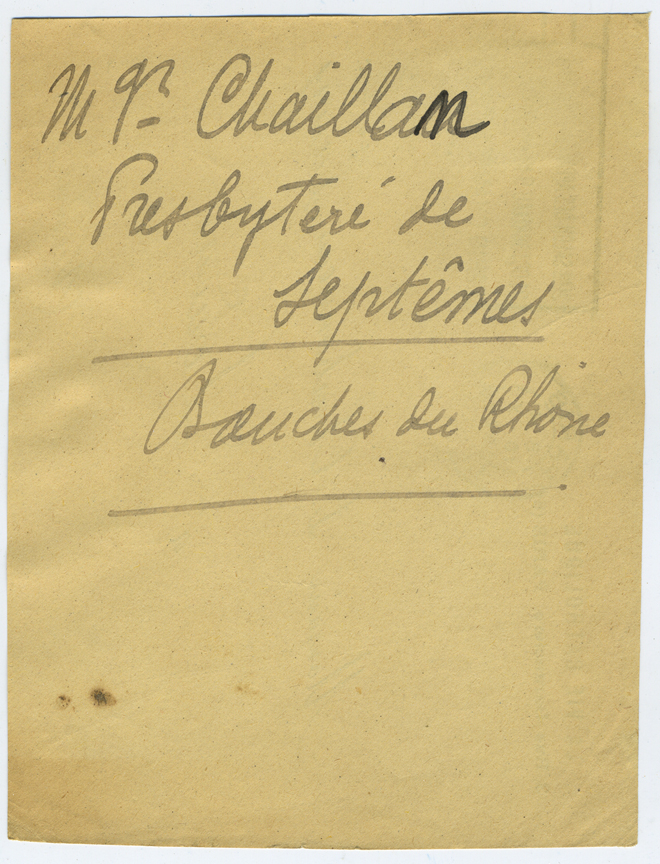 Mgr Chaillan
Presbyteré de
Septêmes
Bouches du Rhône